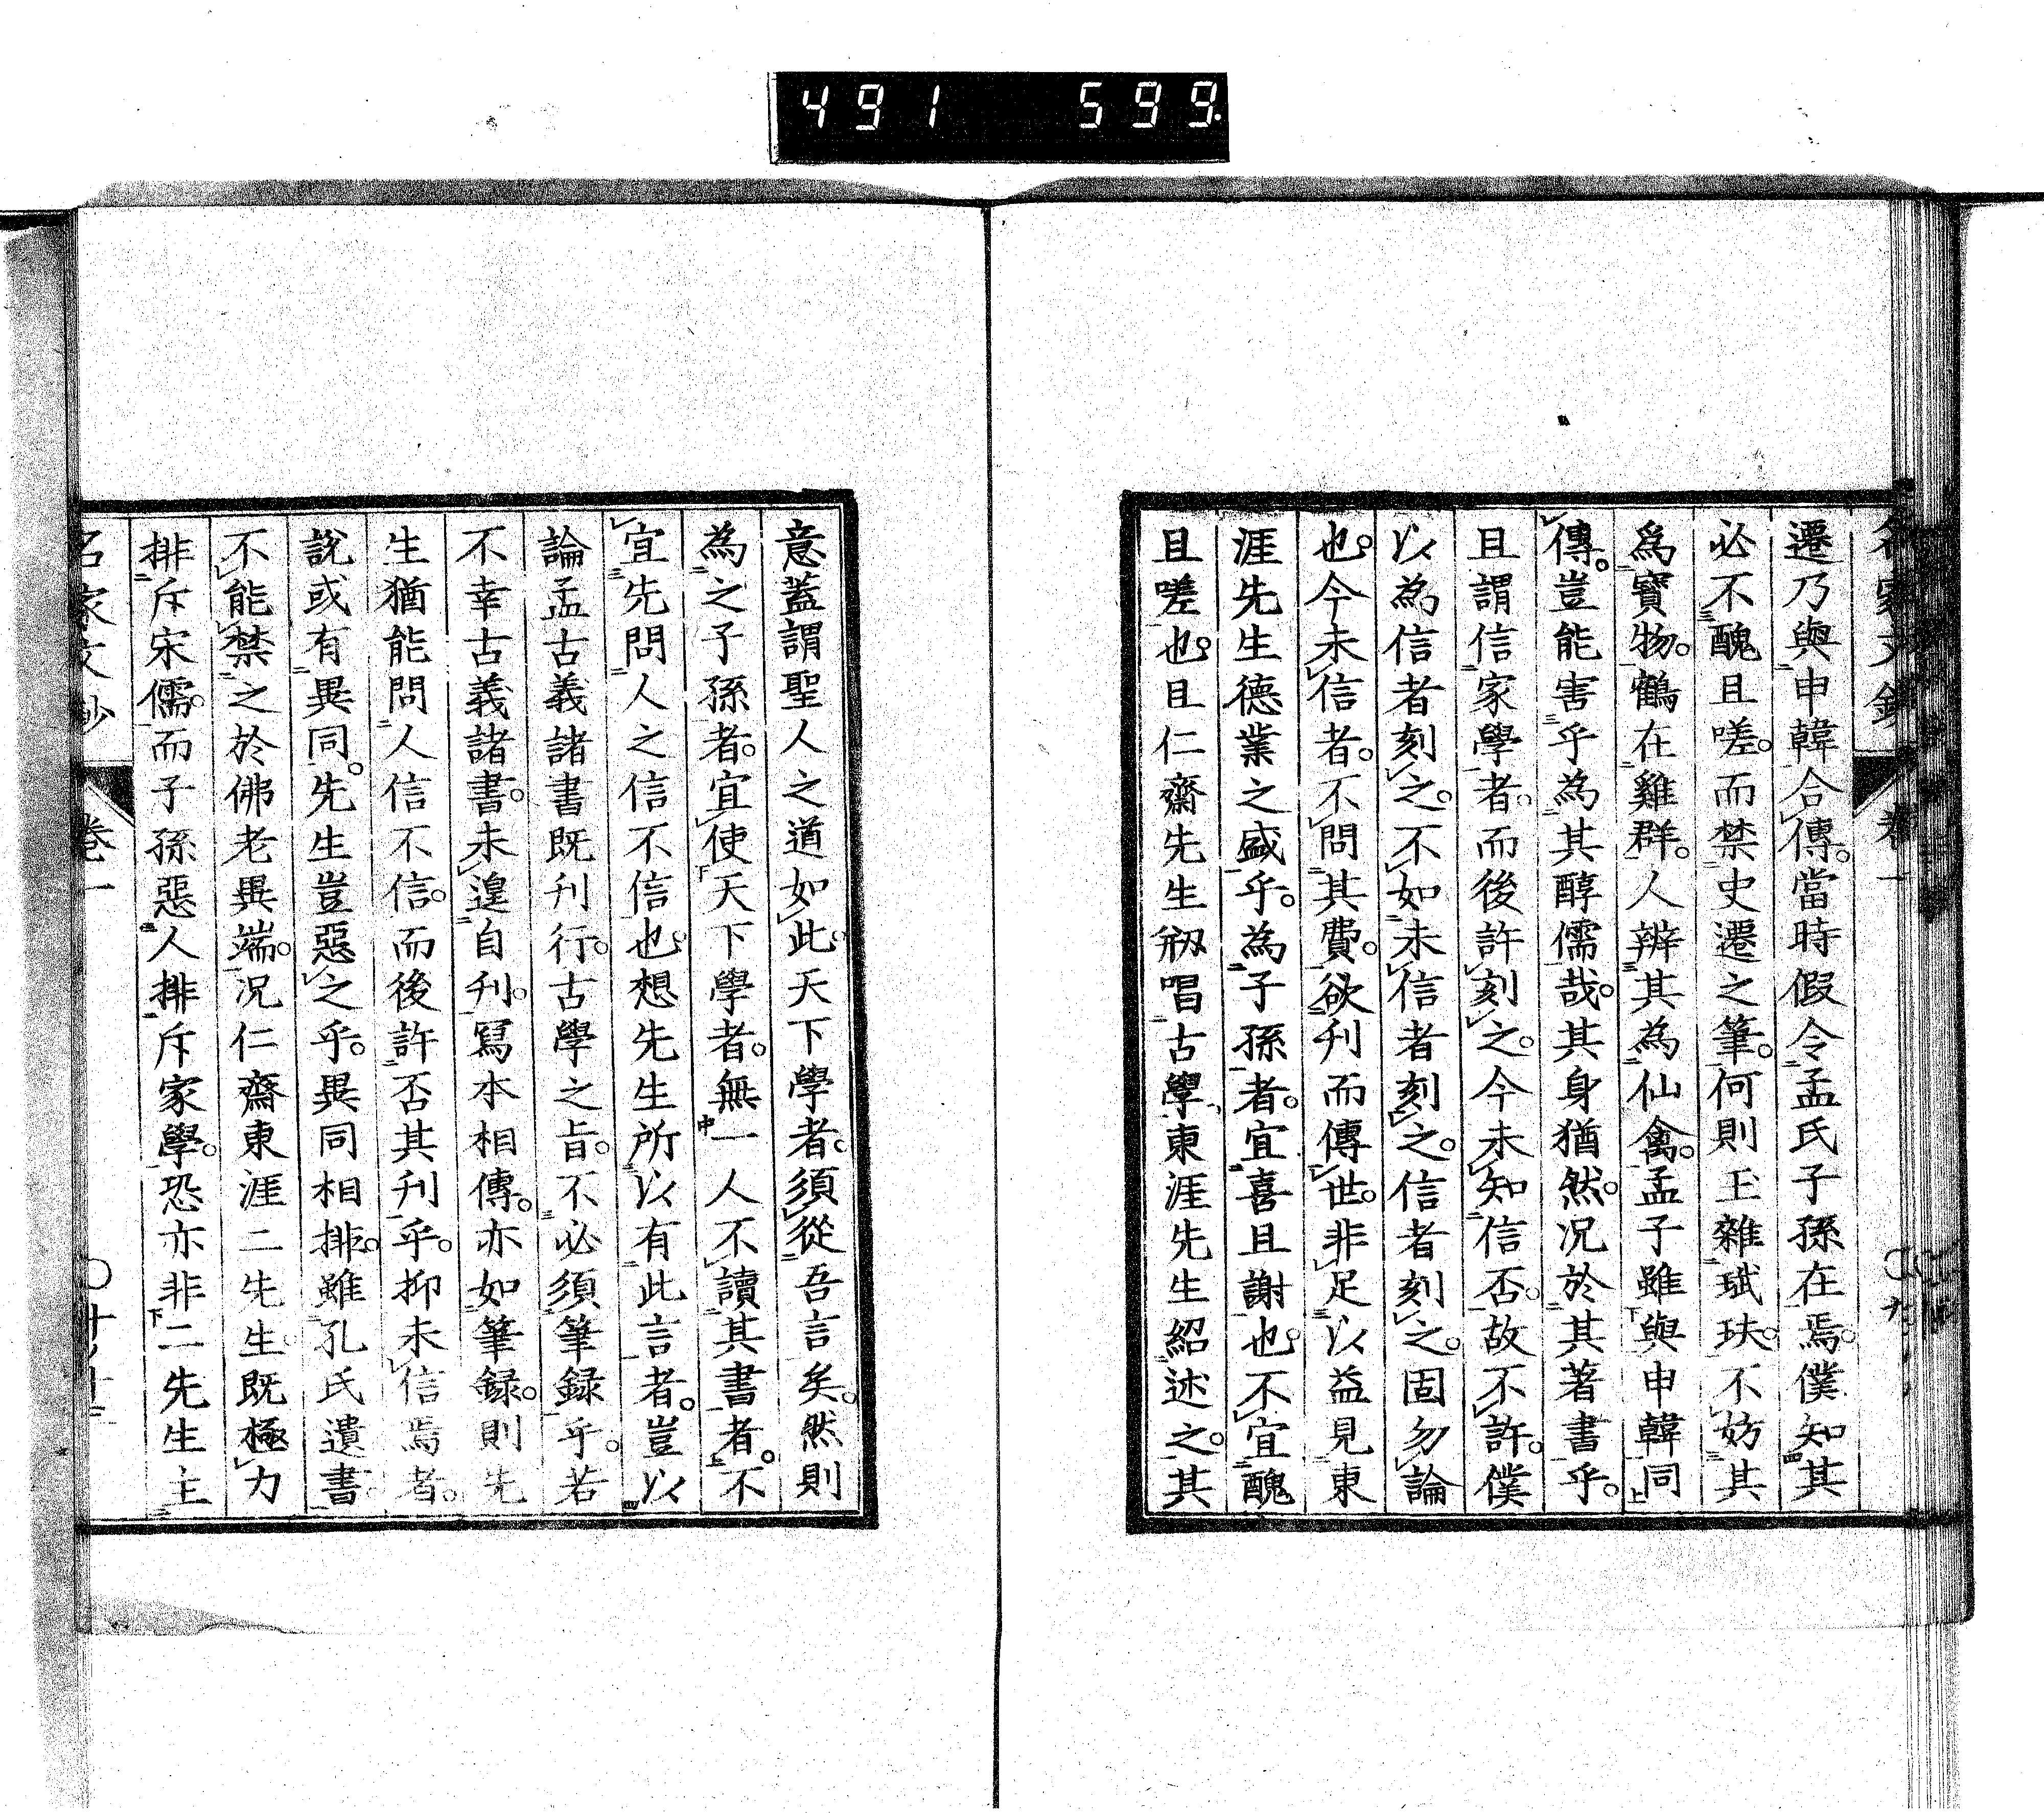 491 599.
遷乃與申韓合傳。當時假令孟氏子孫在焉。僕知其
必不醜且嗟。而禁史遷之筆。何則玉雜珷玞。不妨其
爲寳物。鶴在雞群。人辨其為仙禽。孟子雖與申韓同
傳。豈能害乎為其醇儒哉。其身猶然。况於其著書乎。
且謂信家學者。而後許刻之。今未知信否。故不許。僕
以為信者刻之。不如未信者刻之。信者刻之。固勿論
也。今未信者。不問其費。欲刋而傳世。非足以益見東
涯先生德業之盛乎。為子孫者。宜喜且謝也。不宜醜
且嗟也。且仁齋先生剏唱古學、東涯先生紹述之。其
意蓋謂聖人之道如此。天下學者。須從吾言矣。然則
為之子孫者。宜使天下學者。無一人不讀其書者。不
宜先問人之信不信也。想先生所以有此言者。豈以
論孟古義諸書既刋行。古學之旨。不必須筆録乎。若
不幸古義諸書。未遑自刋。冩本相傳。亦如筆録。則先
生猶能問人信不信。而後許否其刋乎。抑未信焉者。
說或有異同。先生豈惡之乎。異同相排。雖孔氏遺書
不能禁之於佛老異端。况仁齋東涯二先生既極力
排斥宋儒。而子孫惡人排斥家學。恐亦非二先生主
名家文鈔 卷一